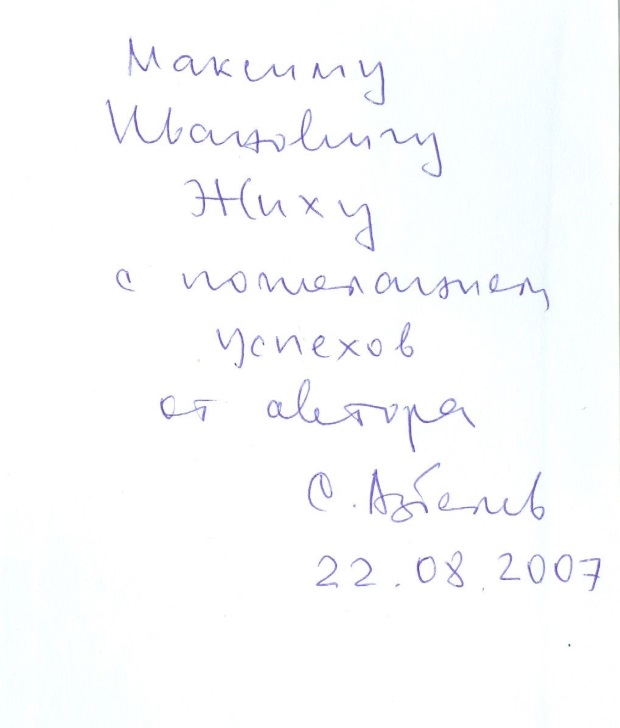 Максиму
Ивановичу
Жиху
с пожеланием
успехов
от автора
С. Азбелев
22.08.2007